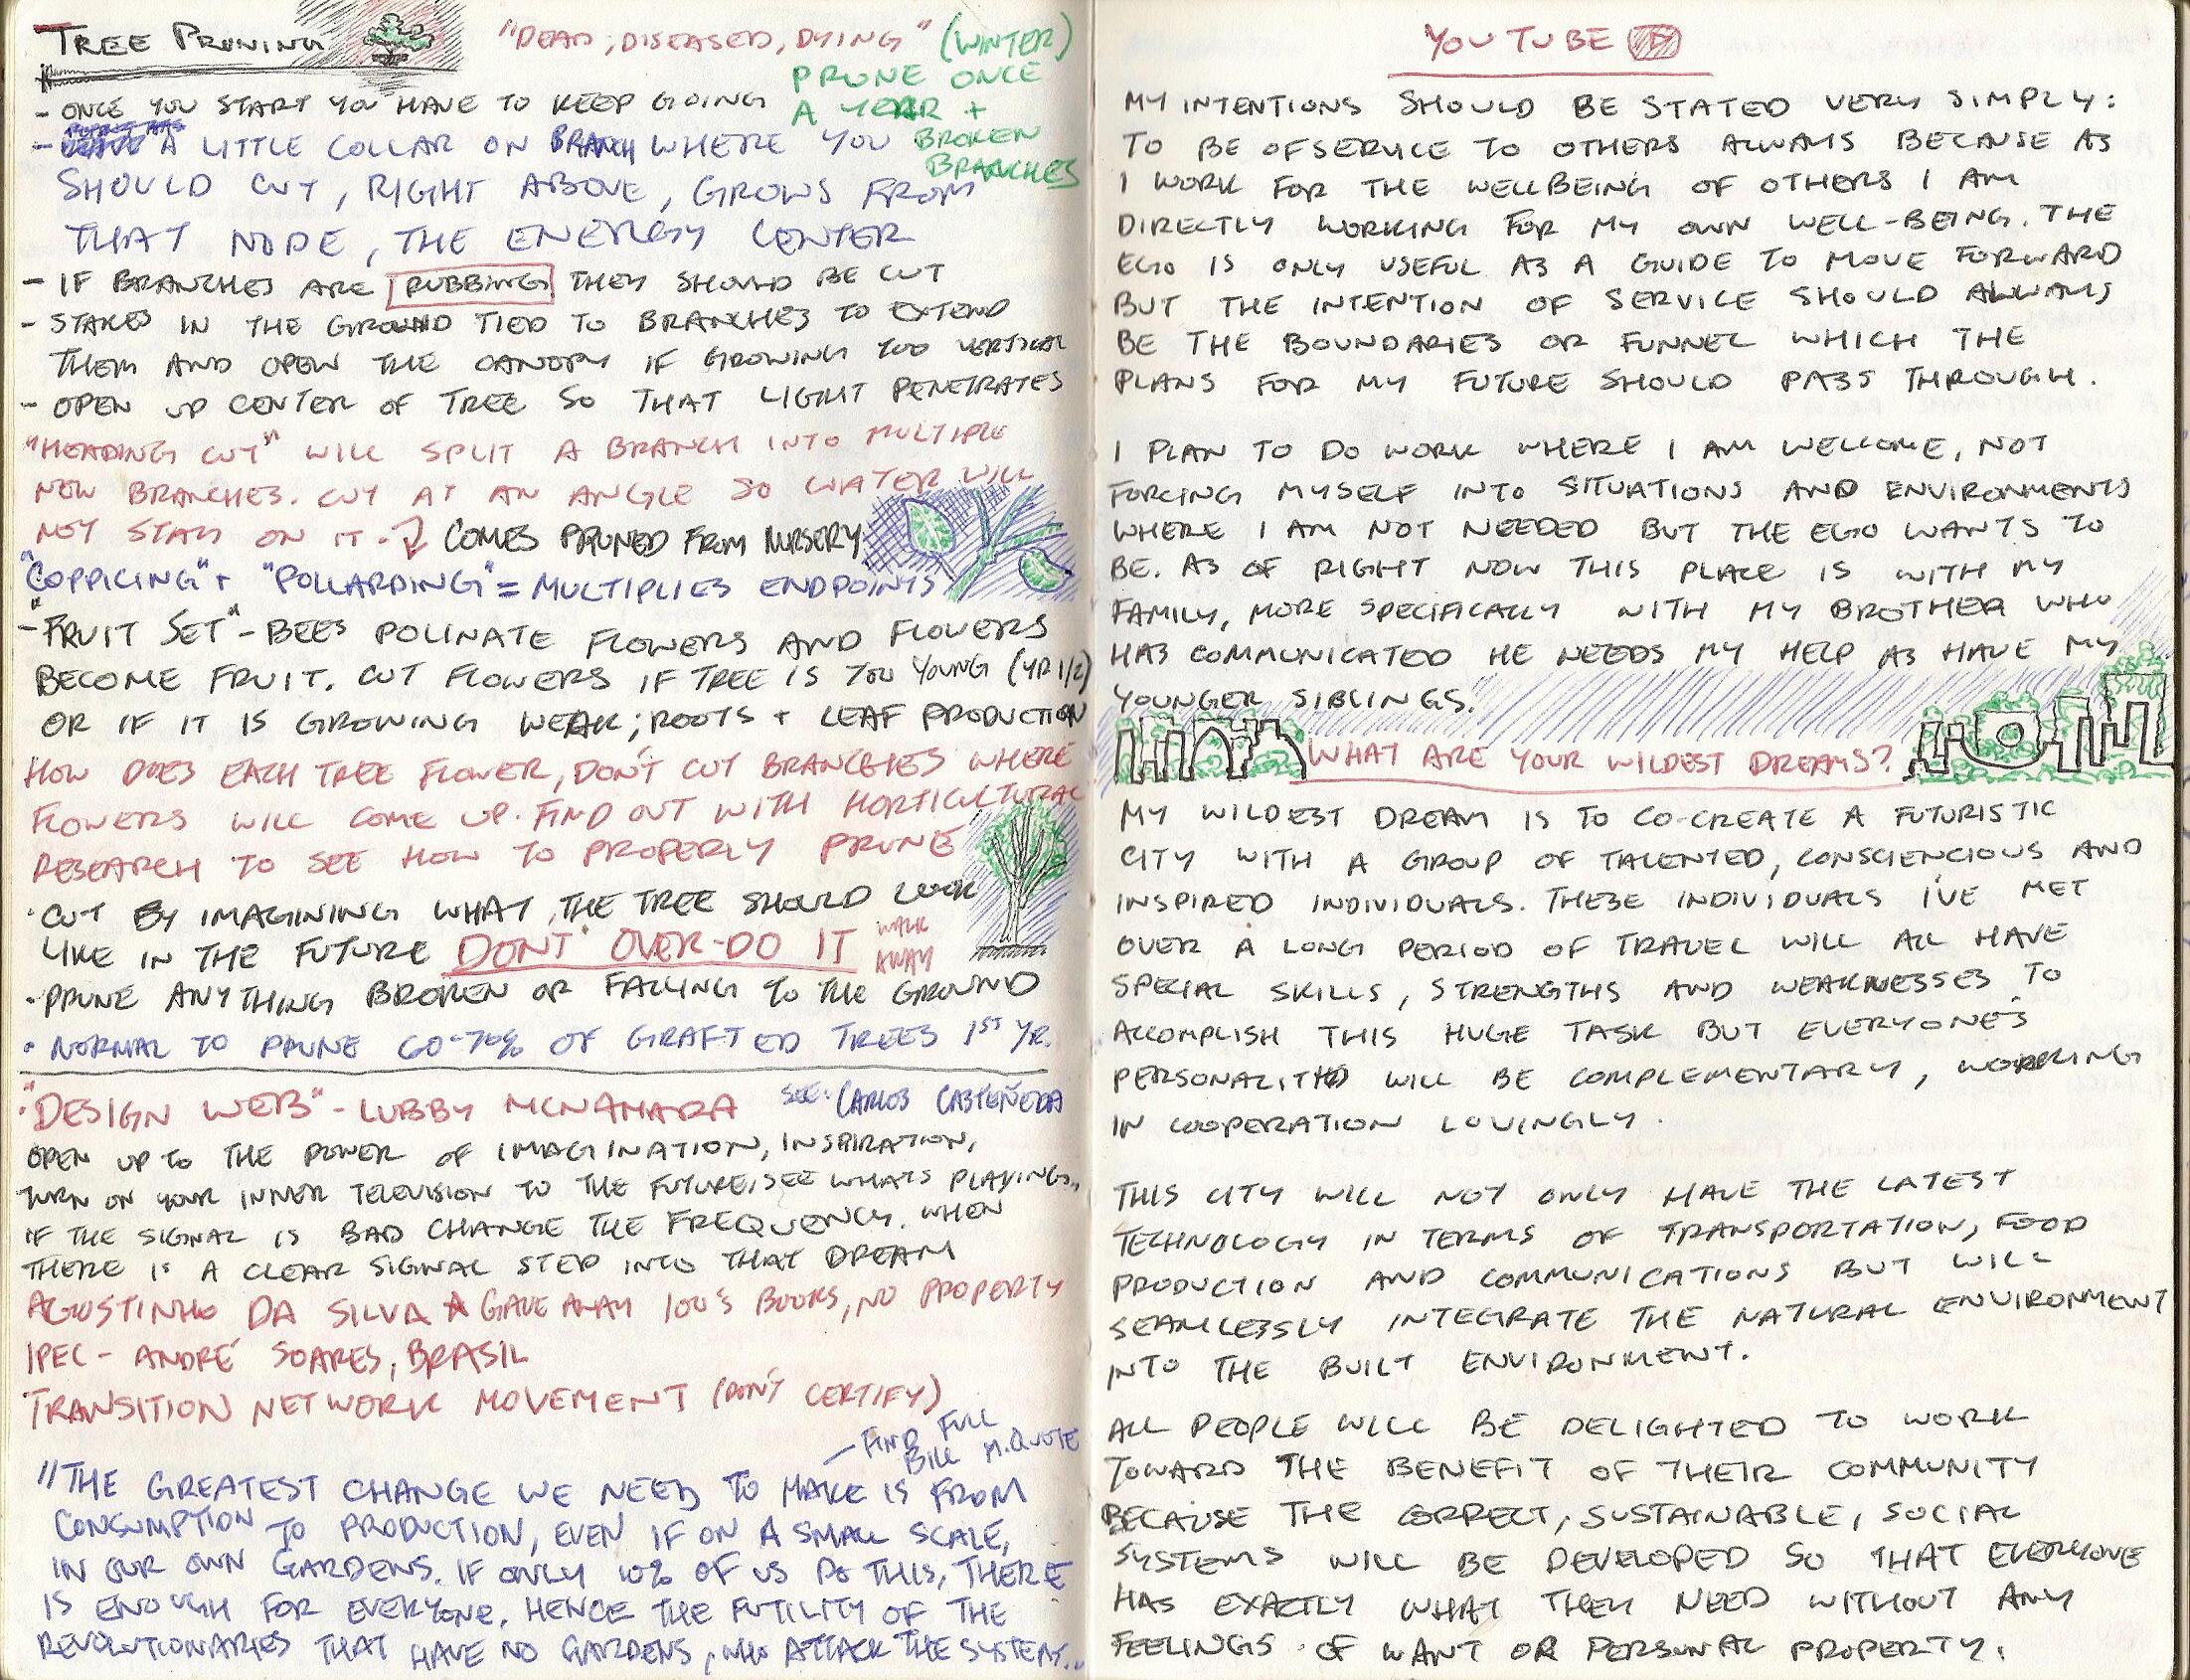 TREE PRUNING
"DEAD, DISEASED, DYING" (WINTER)
PRUNE ONCE
A YEAR +
BROKEN
BRANCHES
- ONCE YOU START YOU HAVE TO KEEP GOING
- A LITTLE COLLAR ON BRANCH WHERE YOU
SHOULD CUT, RIGHT ABOVE, GROWS FROM
THAT NODE, THE ENERGY CENTER
- IF BRANCHES ARE RUBBING THEY SHOULD BE CUT
- STAKES IN THE GROUND TIED TO BRANCHES TO EXTEND
THEM AND OPEN THE CANOPY IF GROWING TOO VERTICAL
- OPEN UP CENTER OF TREE SO THAT LIGHT PENETRATES
"HEADING CUT" WILL SPLIT A BRANCH INTO MULTIPLE
NEW BRANCHES. CUT AT AN ANGLE SO WATER WILL
NOT STAY ON IT. COMES PRUNED FROM NURSERY
"COPPICING" + "POLLARDING" = MULTIPLIES ENDPOINTS
- "FRUIT SET" - BEES POLINATE FLOWERS AND FLOWERS
BECOME FRUIT. CUT FLOWERS IF TREE IS TOO YOUNG (YR 1/2)
OR IF IT IS GROWING WEAK; ROOTS + LEAF PRODUCTION
HOW DOES EACH TREE FLOWER, DON'T CUT BRANCHES WHERE
FLOWERS WILL COME UP. FIND OUT WITH HORTICULTURAL
RESEARCH TO SEE HOW TO PROPERLY PRUNE
· CUT BY IMAGINING WHAT THE TREE SHOULD LOOK
LIKE IN THE FUTURE DONT OVER-DO IT WALK
AWAY
· PRUNE ANYTHING BROKEN OR FALLING TO THE GROUND
· NORMAL TO PRUNE 60-70% OF GRAFTED TREES 1ST YR.
· "DESIGN WEB" - LUBBY MCNAMARA SEE: CARLOS CASTEÑEDA
OPEN UP TO THE POWER OF IMAGINATION, INSPIRATION,
TURN ON YOUR INNER TELEVISION TO THE FUTURE, SEE WHATS PLAYING..
IF THE SIGNAL IS BAD CHANGE THE FREQUENCY. WHEN
THERE IS A CLEAR SIGNAL STEP INTO THAT DREAM
AGOSTINHO DA SILVA GAVE AWAY 100'S BOOKS, NO PROPERTY
IPEC - ANDRÉ SOARES, BRASIL
TRANSITION NETWORK MOVEMENT (DON'T CERTIFY)
- FIND FULL
BILL M. QUOTE
"THE GREATEST CHANGE WE NEED TO MAKE IS FROM
CONSUMPTION TO PRODUCTION, EVEN IF ON A SMALL SCALE,
IN OUR OWN GARDENS. IF ONLY 10% OF US DO THIS, THERE
IS ENOUGH FOR EVERYONE. HENCE THE FUTILITY OF THE
REVOLUTIONARIES THAT HAVE NO GARDENS, WHO ATTACK THE SYSTEM...
YOUTUBE
MY INTENTIONS SHOULD BE STATED VERY SIMPLY:
TO BE OF SERVICE TO OTHERS ALWAYS BECAUSE AS
I WORK FOR THE WELLBEING OF OTHERS I AM
DIRECTLY WORKING FOR MY OWN WELL-BEING. THE
EGO IS ONLY USEFUL AS A GUIDE TO MOVE FORWARD
BUT THE INTENTION OF SERVICE SHOULD ALWAYS
BE THE BOUNDARIES OR FUNNEL WHICH THE
PLANS FOR MY FUTURE SHOULD PASS THROUGH.
I PLAN TO DO WORK WHERE I AM WELCOME, NOT
FORCING MYSELF INTO SITUATIONS AND ENVIRONMENTS
WHERE I AM NOT NEEDED BUT THE EGO WANTS TO
BE. AS OF RIGHT NOW THIS PLACE IS WITH MY
FAMILY, MORE SPECIFICALLY WITH MY BROTHER WHO
HAS COMMUNICATED HE NEEDS MY HELP AS HAVE MY
YOUNGER SIBLINGS.
WHAT ARE YOUR WILDEST DREAMS?
MY WILDEST DREAM IS TO CO-CREATE A FUTURISTIC
CITY WITH A GROUP OF TALENTED, CONSCIENCIOUS AND
INSPIRED INDIVIDUALS. THESE INDIVIDUALS I'VE MET
OVER A LONG PERIOD OF TRAVEL WILL ALL HAVE
SPECIAL SKILLS, STRENGTHS AND WEAKNESSES TO
ACCOMPLISH THIS HUGE TASK BUT EVERYONE'S
PERSONALITIES WILL BE COMPLEMENTARY, WORKING
IN COOPERATION LOVINGLY.
THIS CITY WILL NOT ONLY HAVE THE LATEST
TECHNOLOGY IN TERMS OF TRANSPORTATION, FOOD
PRODUCTION AND COMMUNICATIONS BUT WILL
SEAMLESSLY INTEGRATE THE NATURAL ENVIRONMENT
INTO THE BUILT ENVIRONMENT.
ALL PEOPLE WILL BE DELIGHTED TO WORK
TOWARD THE BENEFIT OF THEIR COMMUNITY
BECAUSE THE CORRECT, SUSTAINABLE, SOCIAL
SYSTEMS WILL BE DEVELOPED SO THAT EVERYONE
HAS EXACTLY WHAT THEY NEED WITHOUT ANY
FEELINGS OF WANT OR PERSONAL PROPERTY.